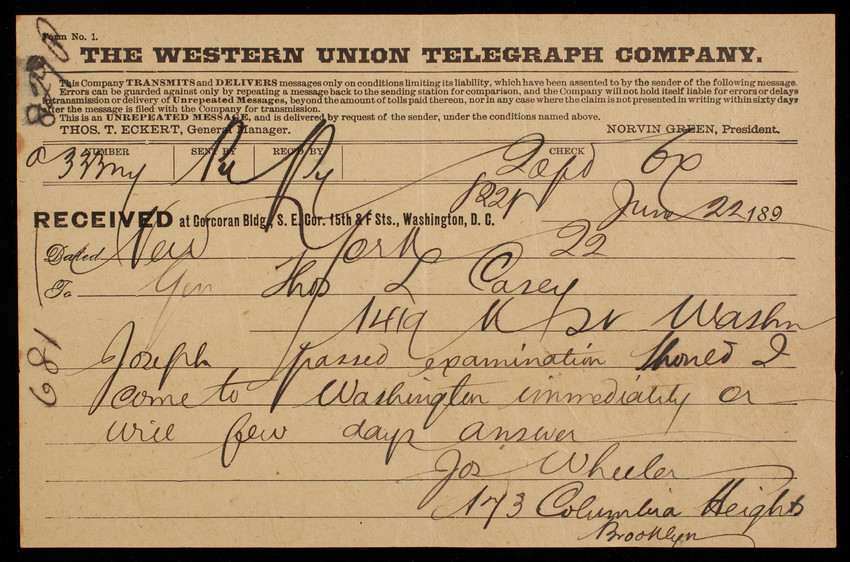 Form No. 1.
THE WESTERN UNION TELEGRAPH COMPANY.
This Company TRANSMITS and DELIVERS messages only on conditions limiting its liability, which have been assented to by the sender of the following message.
Errors can be guarded against only by repeating a message back to the sending station for comparison, and the Company will not hold itself liable for errors or delays
in transmission or delivery of Unrepeated Messages, beyond the amount of tolls paid thereon, nor in any case where the claim is not presented in writing within sixty days
after the message is filed with the Company for transmission.
This is an UNREPEATED MESSAGE, and is delivered by request of the sender, under the conditions named above.
THOS. T. ECKERT, General Manager. NORVIN GREEN, President.
NUMBER SENT BY REC'D BY CHECK
Ry
822P
June 22 189
RECEIVED at Corcoran Bldg., S. E. Cor. 15th & F Sts., Washington, D. C.
Dated New York 22
To Gen Thos L Casey
1419 K St Washn
Joseph passed examination Should I
come to Washington immediately or
will few days answer
Jos Wheeler
173 Columbia Heights
Brooklyn
681